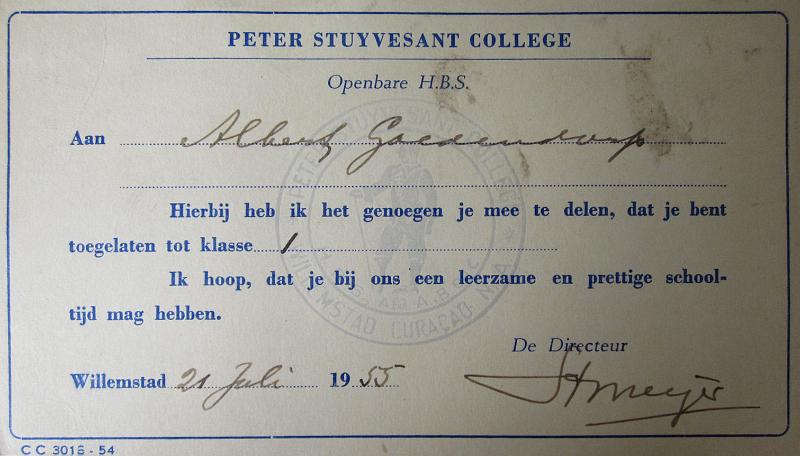 PETER STUYVESANT COLLEGE
Openbare H.B.S.
Aan Albert Goedendorp
Hierbij heb ik het genoegen je mee te delen, dat je bent
toegelaten tot klasse 1
Ik hoop, dat je bij ons een leerzame en prettige school-
tijd mag hebben.
De Directeur
Willemstad 21 Juli 1955
PETER STUYVESANT COLLEGE
WILLEMSTAD CURAÇAO N.A.
C C 3016 - 54